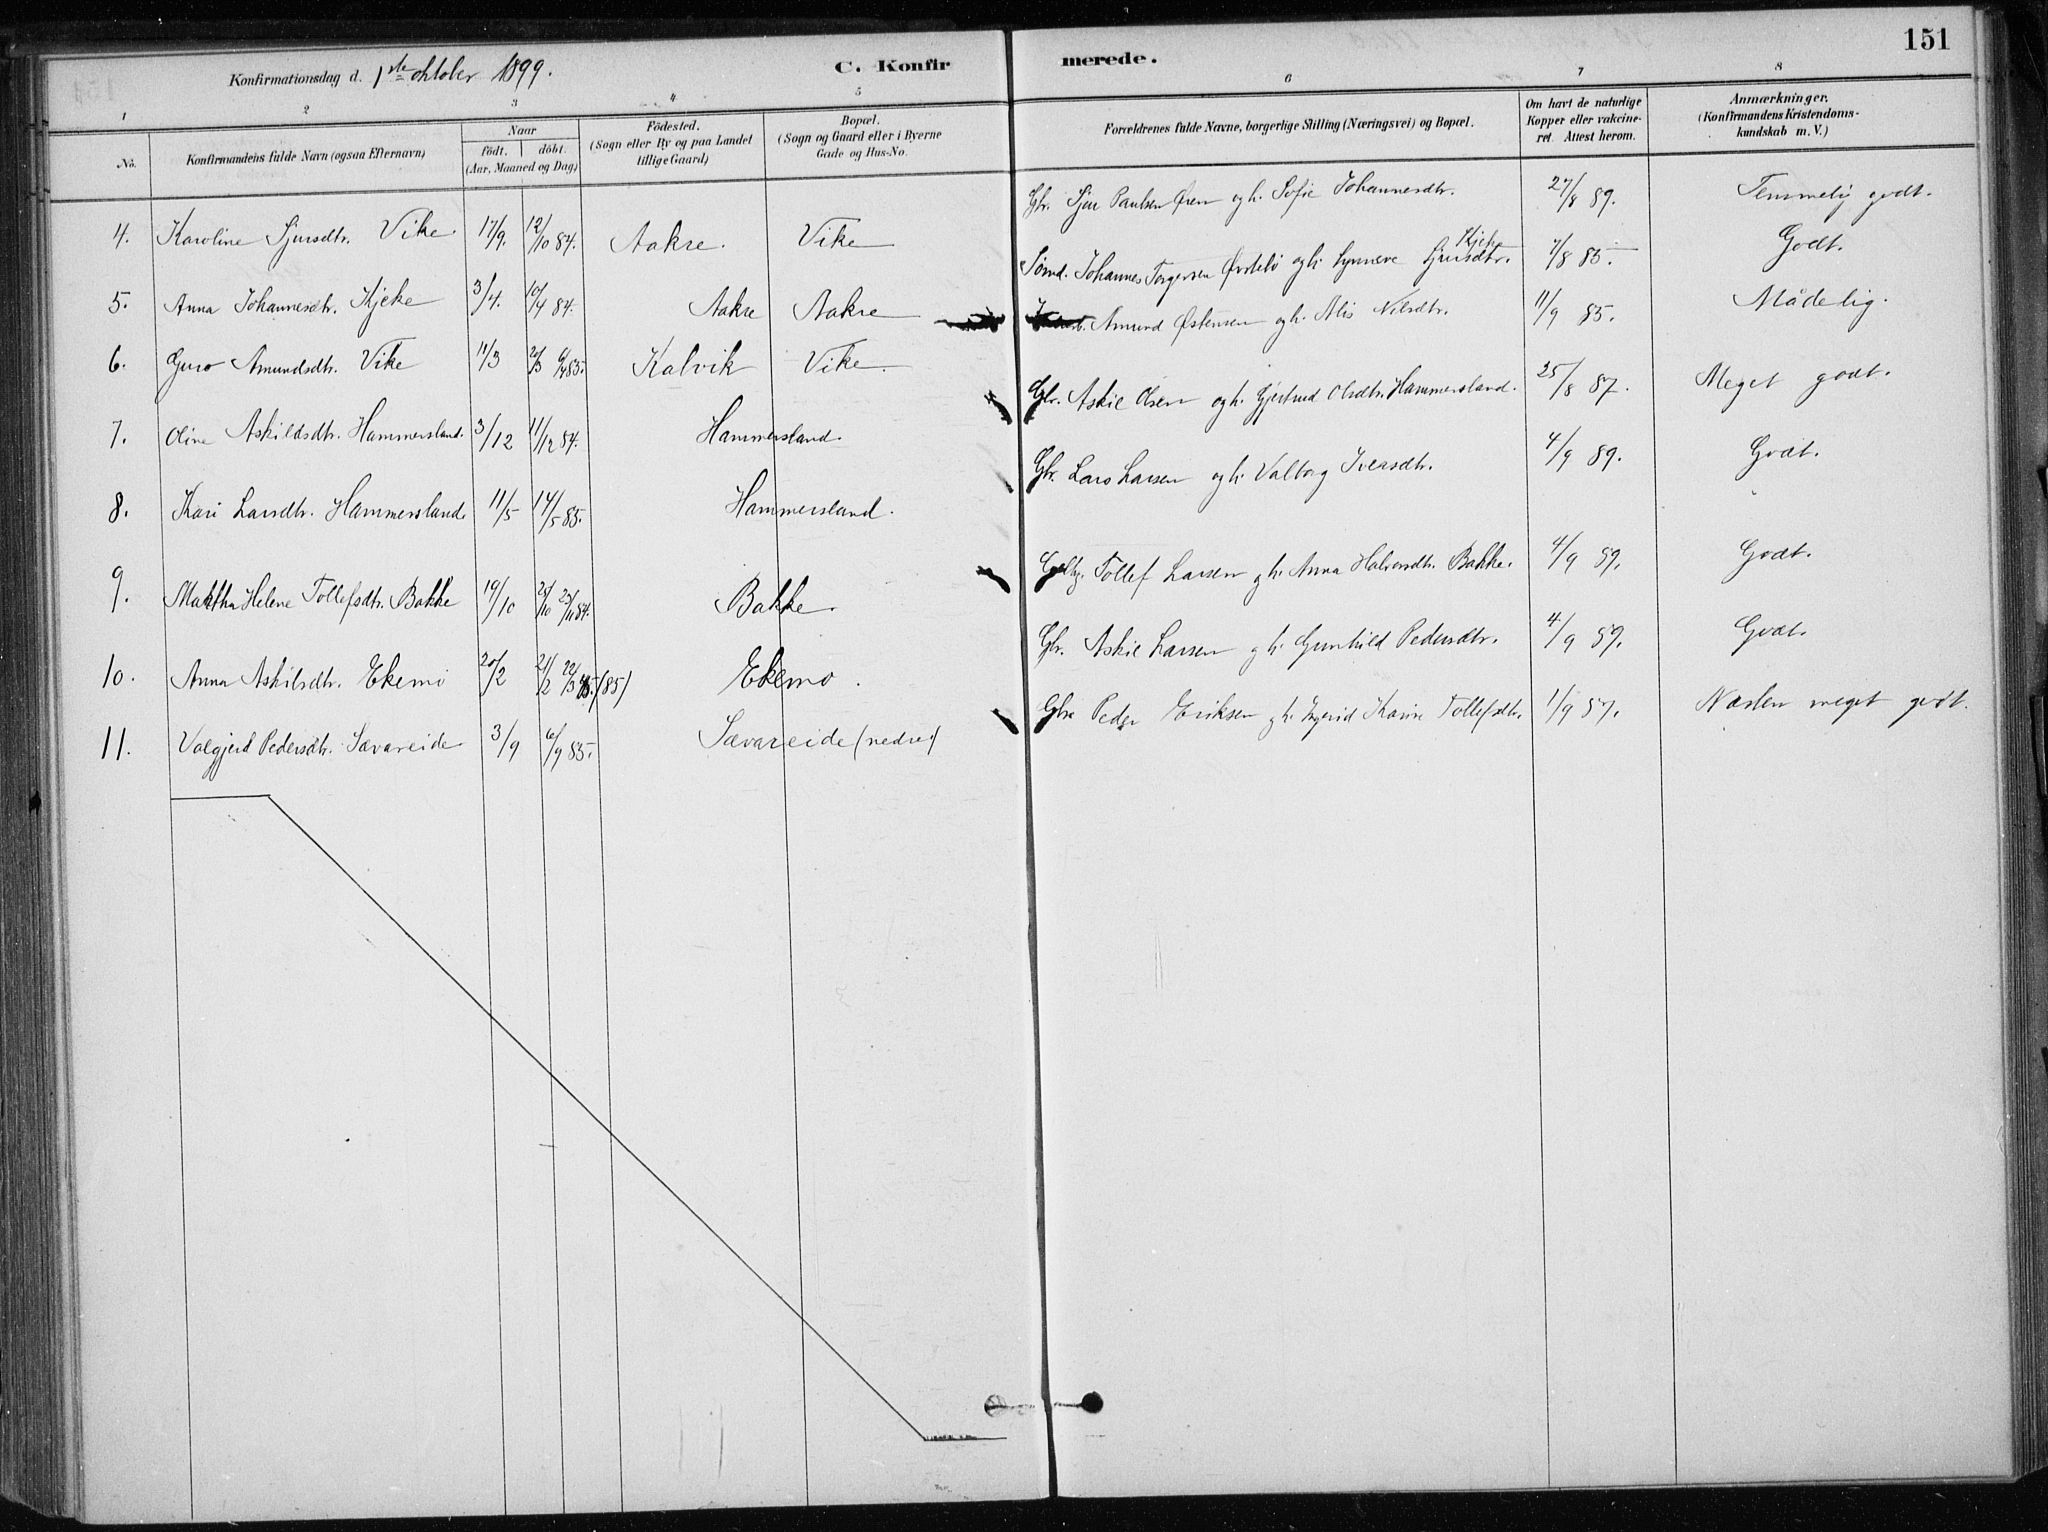 151
Konfirmationsdag d. 1ste oktober 1899. C. Konfirmerede.
1 2 3 4 5 6 7 8
No. Konfirmandens fulde Navn (ogsaa Efternavn) Naar födt. döbt. (Aar, Maaned og Dag) Födested. (Sogn eller By og paa Landet tillige Gaard) Bopæl. (Sogn og Gaard eller i Byerne Gade og Hus-No. Forældrenes fulde Navne, borgerlige Stilling (Næringsvei) og Bopæl. Om havt de naturlige Kopper eller vakcineret. Attest herom. Anmærkninger. (Konfirmandens Kristendomskundskab m. V.)
4. Karoline Sjursdtr. Vike. 17/9. 12/10 84. Aakre. Vike Gbr. Sjur Paulsen Øren og h. Sofie Johannesdtr. 27/8 89. Temmelig godt.
5. Anna Johannesdtr. Kjeke 3/4. 10/4 84. Aakre Aakre Johannes Torgersen og h. Synneve Sjursdtr. Kjeke 7/8 85. Godt.
6. Guro Amundsdtr. Vike 11/3 85. Kalvik Vike. Amund Østensen og h. Alis Nilsdtr. 11/9 85. Mådelig.
7. Oline Askildsdtr. Hammersland. 3/12 11/12 84. Hammersland. Gbr. Askil Olsen og h. Gjertrud Olsdtr. Hammersland. 25/8 87. Meget godt.
8. Kari Larsdtr. Hammersland 11/5 14/5 85. Hammersland. Gbr. Lars Larsen og h. Valborg Iversdtr. 4/9 89. Godt.
9. Martha Helene Tollefsdtr. Bakke 19/10 23/11 84. Bakke. Tollef Larsen og h. Anna Halvorsdtr. Bakke. 4/9 89. Godt.
10. Anna Askilsdtr. Ekemo 20/2 21/2 22/3 (85) Ekemo. Gbr. Askil Larsen og h. Gunhild Pedersdtr. 4/9 89. Godt.
11. Valgjerd Pedersdtr. Sævareide 3/9 6/9 85. Sævareide (nedre) Gbr. Peder Eriksen og h. Ingerid Karine Tollefsdtr. 1/9 87. Næsten meget godt.